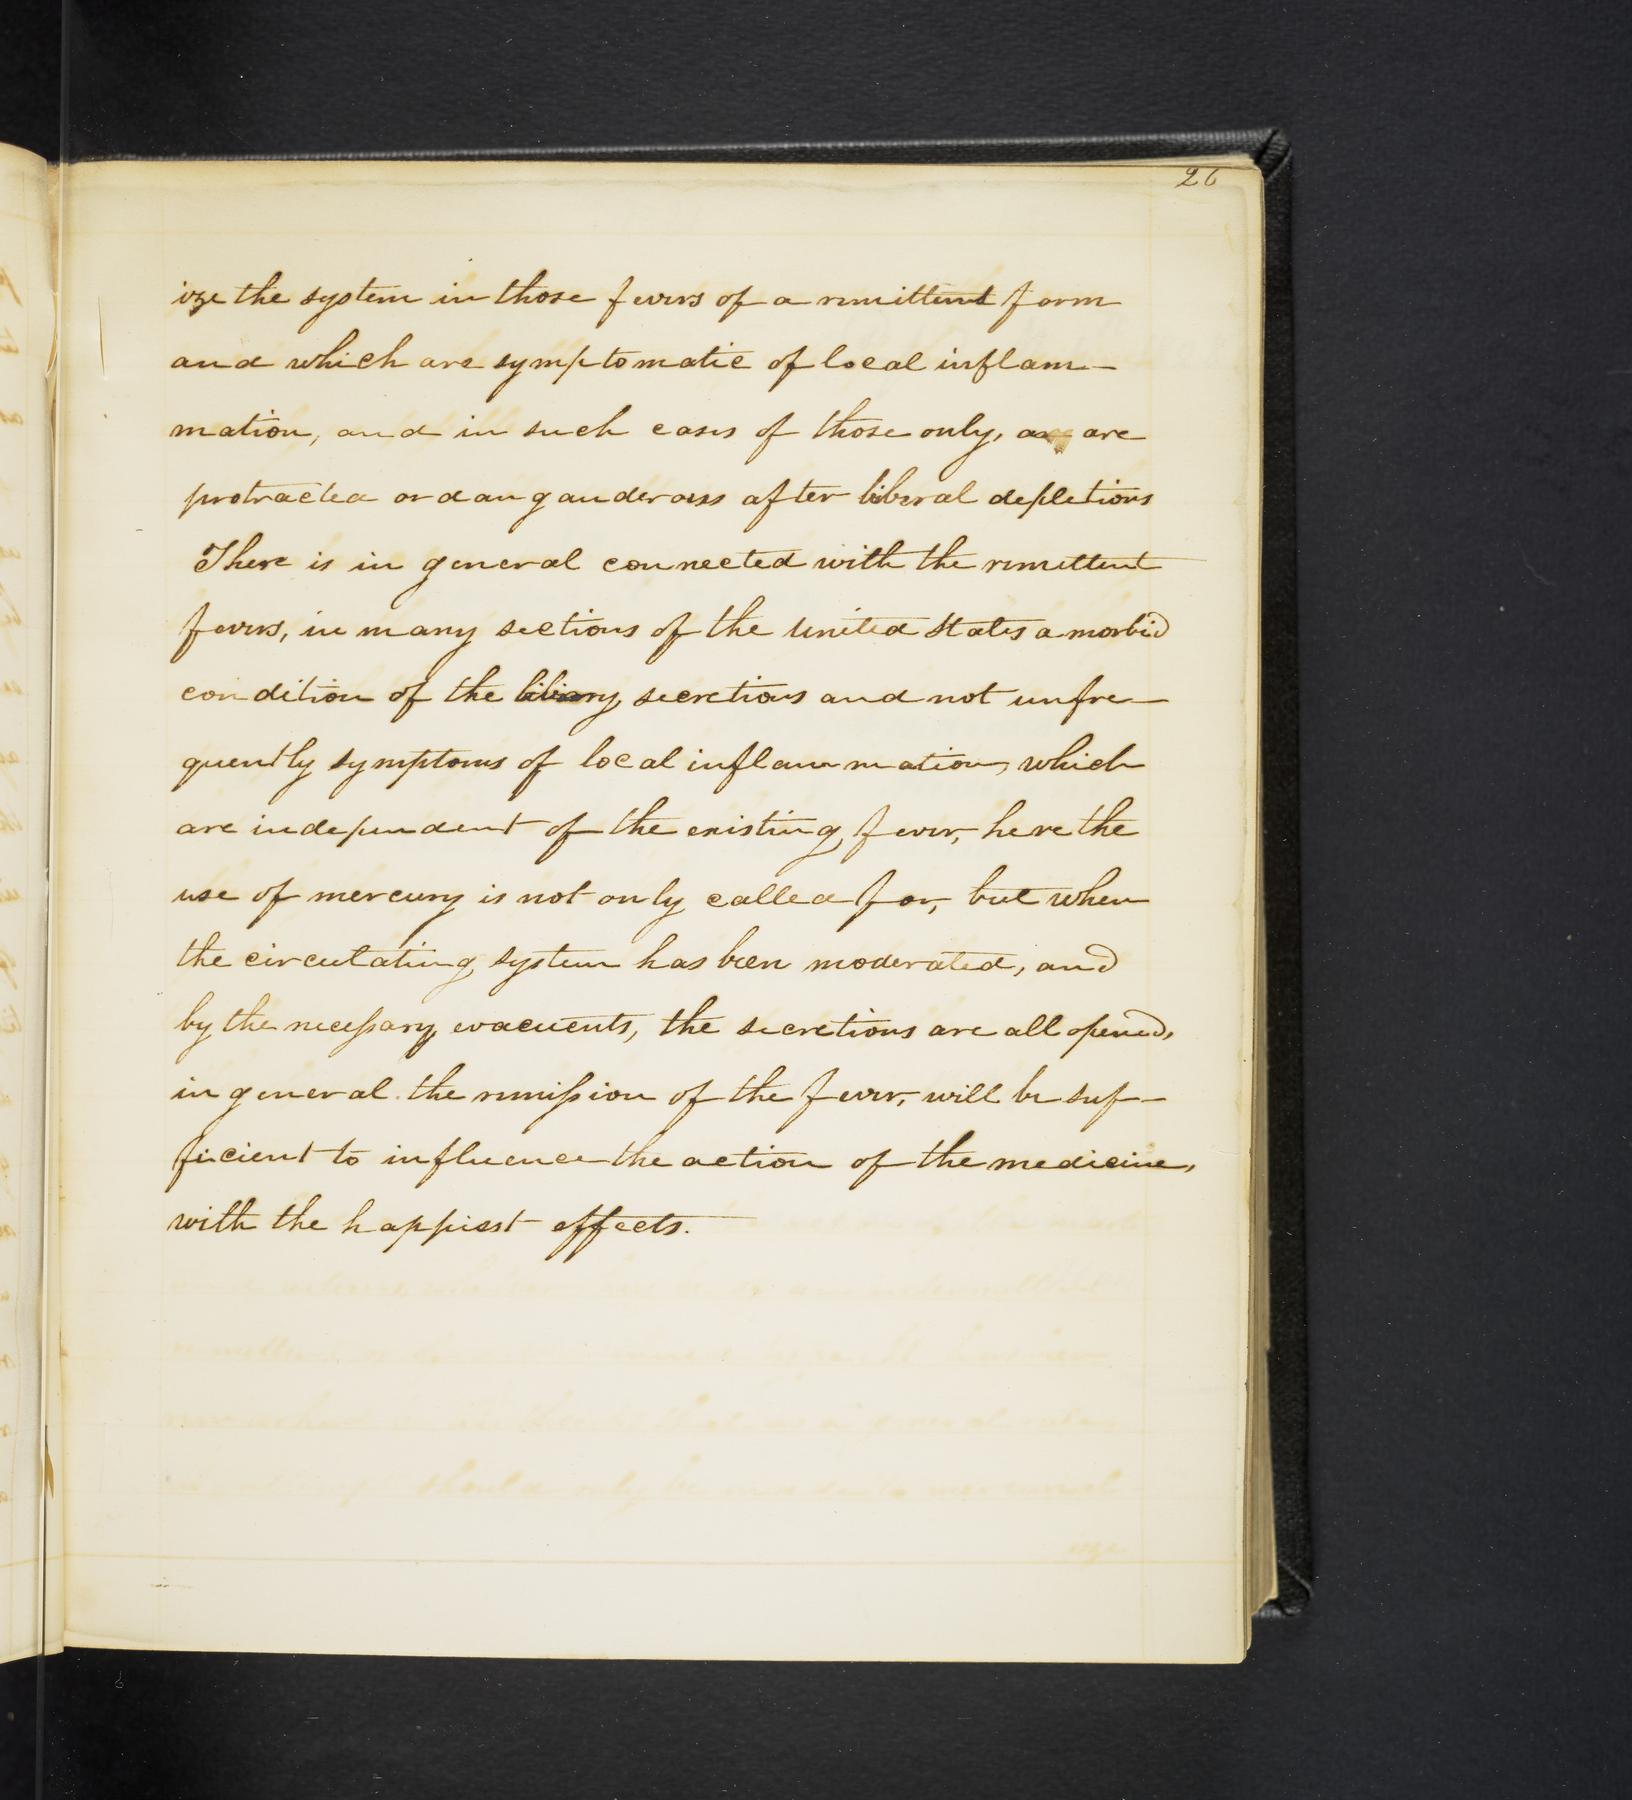 26
ize the system in those fevers of a remittent form
and which are symptomatic of local inflam-
mation, and in such cases of those only, as are
protracted or danganderous after liberal depletions
There is in general connected with the remittent
fevers, in many sections of the United States a morbid
condition of the biliary secretions and not unfre-
quently symptoms of local inflammation, which
are independent of the existing fever, here the
use of mercury is not only called for, but when
the circulating system has been moderated, and
by the necessary evacuents, the secretions are all opened,
in general the remission of the fever, will be suf-
ficient to influence the action of the medicine,
with the happiest effects.